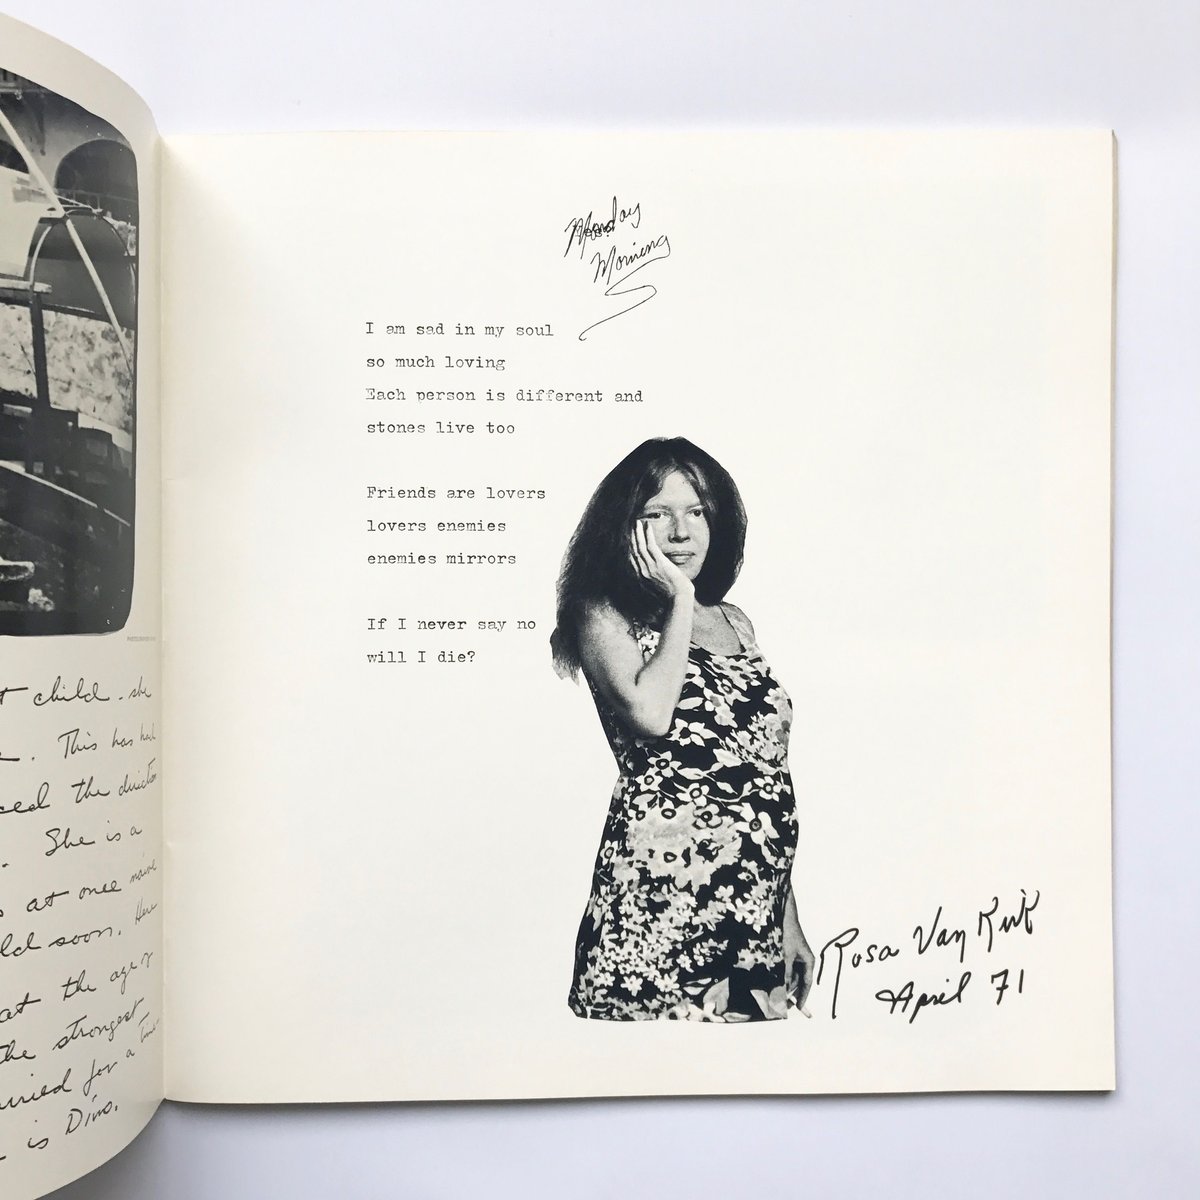 t child. she
. This has had
ced the direction
. She is a
s at once naive
ld soon. Here
at the age of
the strongest
rried for a time
is Dino.
Monday
Morning
I am sad in my soul
so much loving
Each person is different and
stones live too
Friends are lovers
lovers enemies
enemies mirrors
If I never say no
will I die?
Rosa Van Kirk
April 71